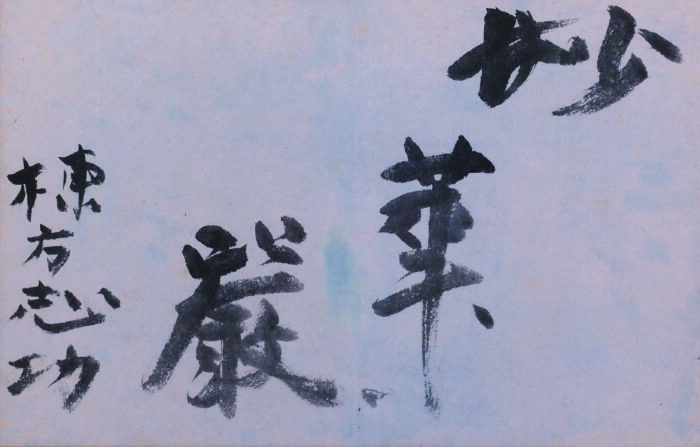 妙
華
嚴
棟方志功